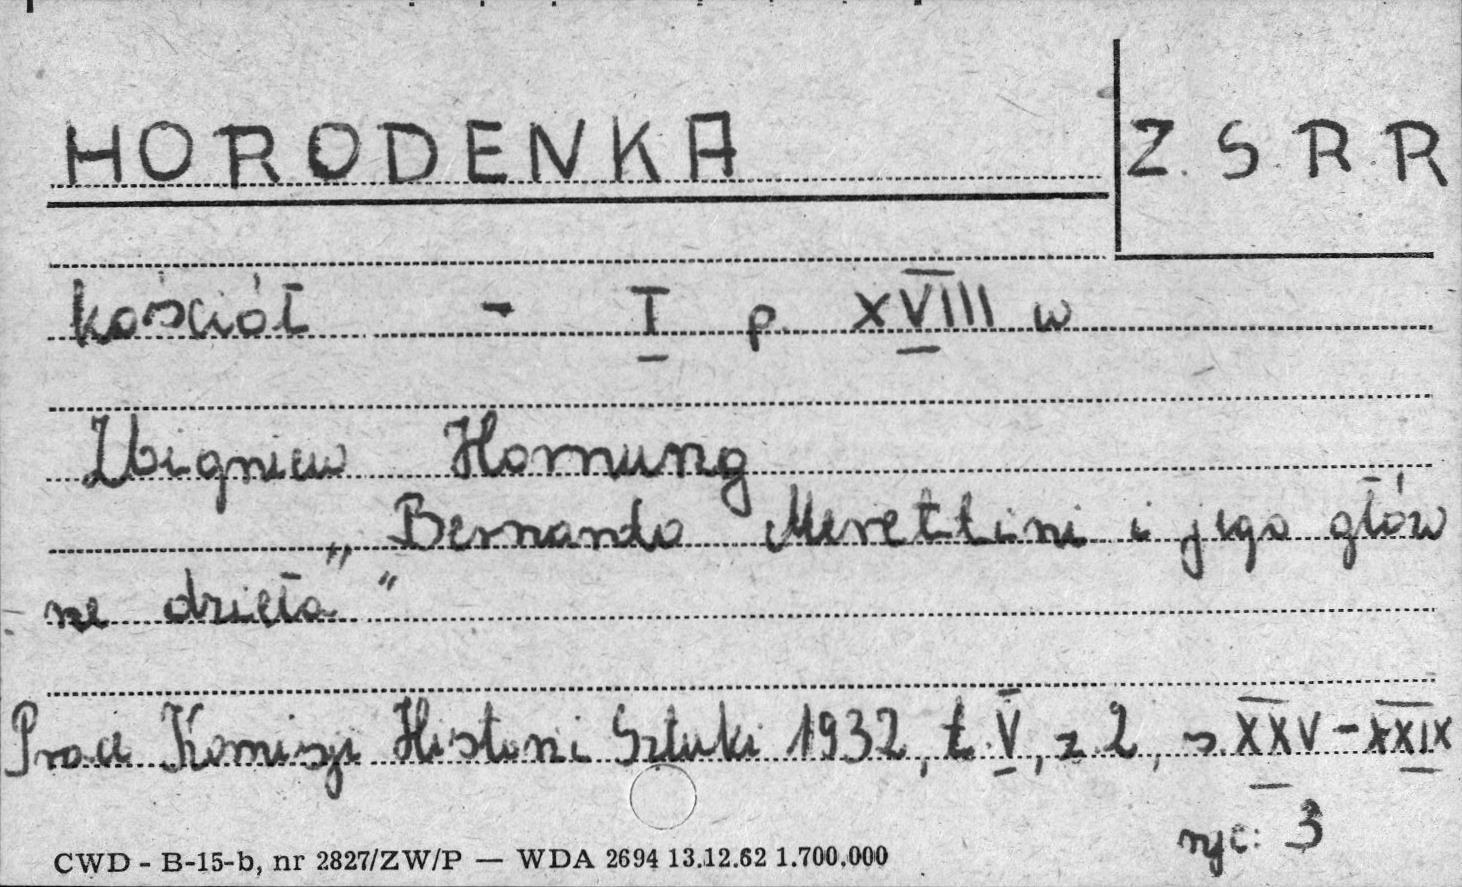 HORODENKA
Z.S.R.R
kościół - I p. XVIII w
Zbigniew Hornung
„Bernardo Merettini i jego głów
ne dzieła"
Prace Komisji Historii Sztuki 1932, t. V, z 2, s. XXV-XXIX
ryc: 3
CWD - B-15-b, nr 2827/ZW/P — WDA 2694 13.12.62 1.700.000